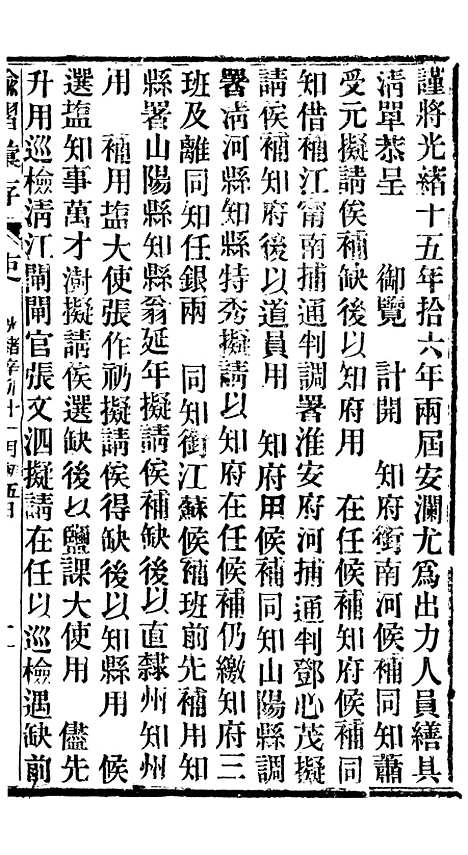 謹將光緒十五年拾六年兩屆安瀾尤爲出力人員繕具
清單恭呈　御覽　計開　知府銜南河候補同知蕭
受元擬請俟補缺後以知府用　在任候補知府候補同
知借補江甯南捕通判調署淮安府河捕通判鄧心茂擬
請俟補知府後以道員用　知府用候補同知山陽縣調
署清河縣知縣特秀擬請以知府在任候補仍繳知府三
班及離同知任銀兩　同知銜江蘇候補班前先補用知
縣署山陽縣知縣翁延年擬請俟補缺後以直隸州知州
用　補用塩大使張作礽擬請俟得缺後以知縣用　候
選塩知事萬才澍擬請俟選缺後以鹽課大使用　儘先
升用巡檢清江閘閘官張文泗擬請在任以巡檢遇缺前
諭摺彙存